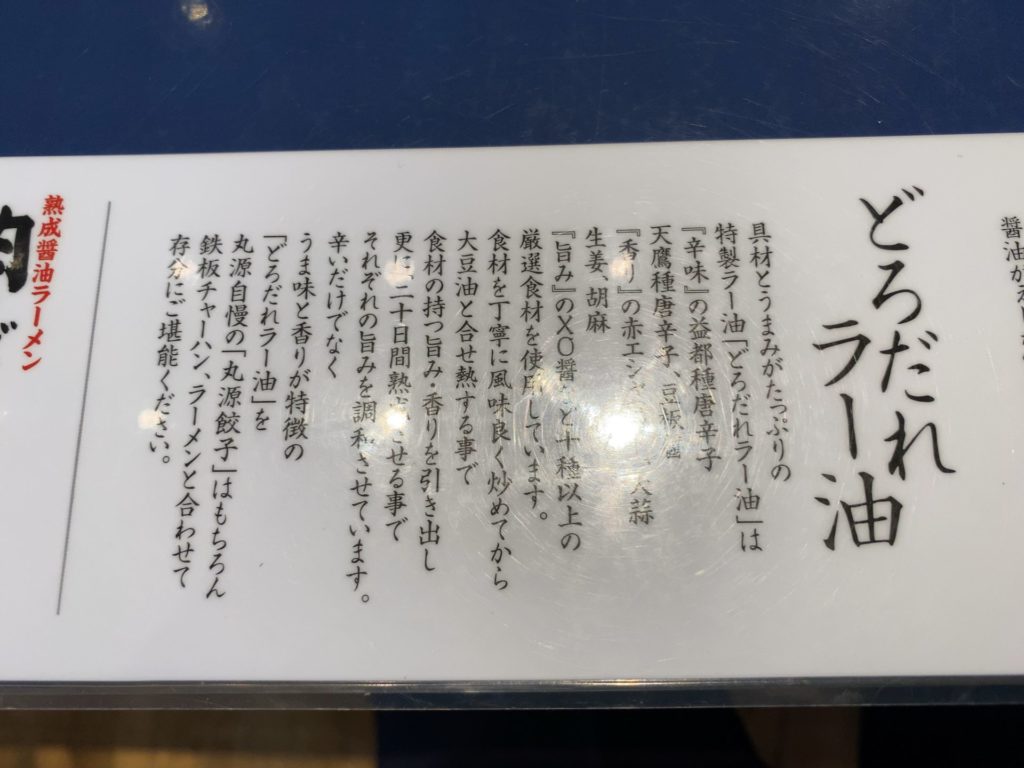 醤油が
どろだれ
ラー油
具材とうまみがたっぷりの
特製ラー油「どろだれラー油」は
『辛味』の益都種唐辛子
天鷹種唐辛子、豆板
『香り』の赤エシャ 、大蒜
生姜、胡麻
『旨み』のXO醤 ど十種以上の
厳選食材を使用しています。
食材を丁寧に風味良く炒めてから
大豆油と合せ熱する事で
食材の持つ旨み・香りを引き出し
更に、二十日間熟成させる事で
それぞれの旨みを調和させています。
辛いだけでなく
うま味と香りが特徴の
「どろだれラー油」を
丸源自慢の「丸源餃子」はもちろん
鉄板チャーハン、ラーメンと合わせて
存分にご堪能ください。
熟成醤油ラーメン
肉